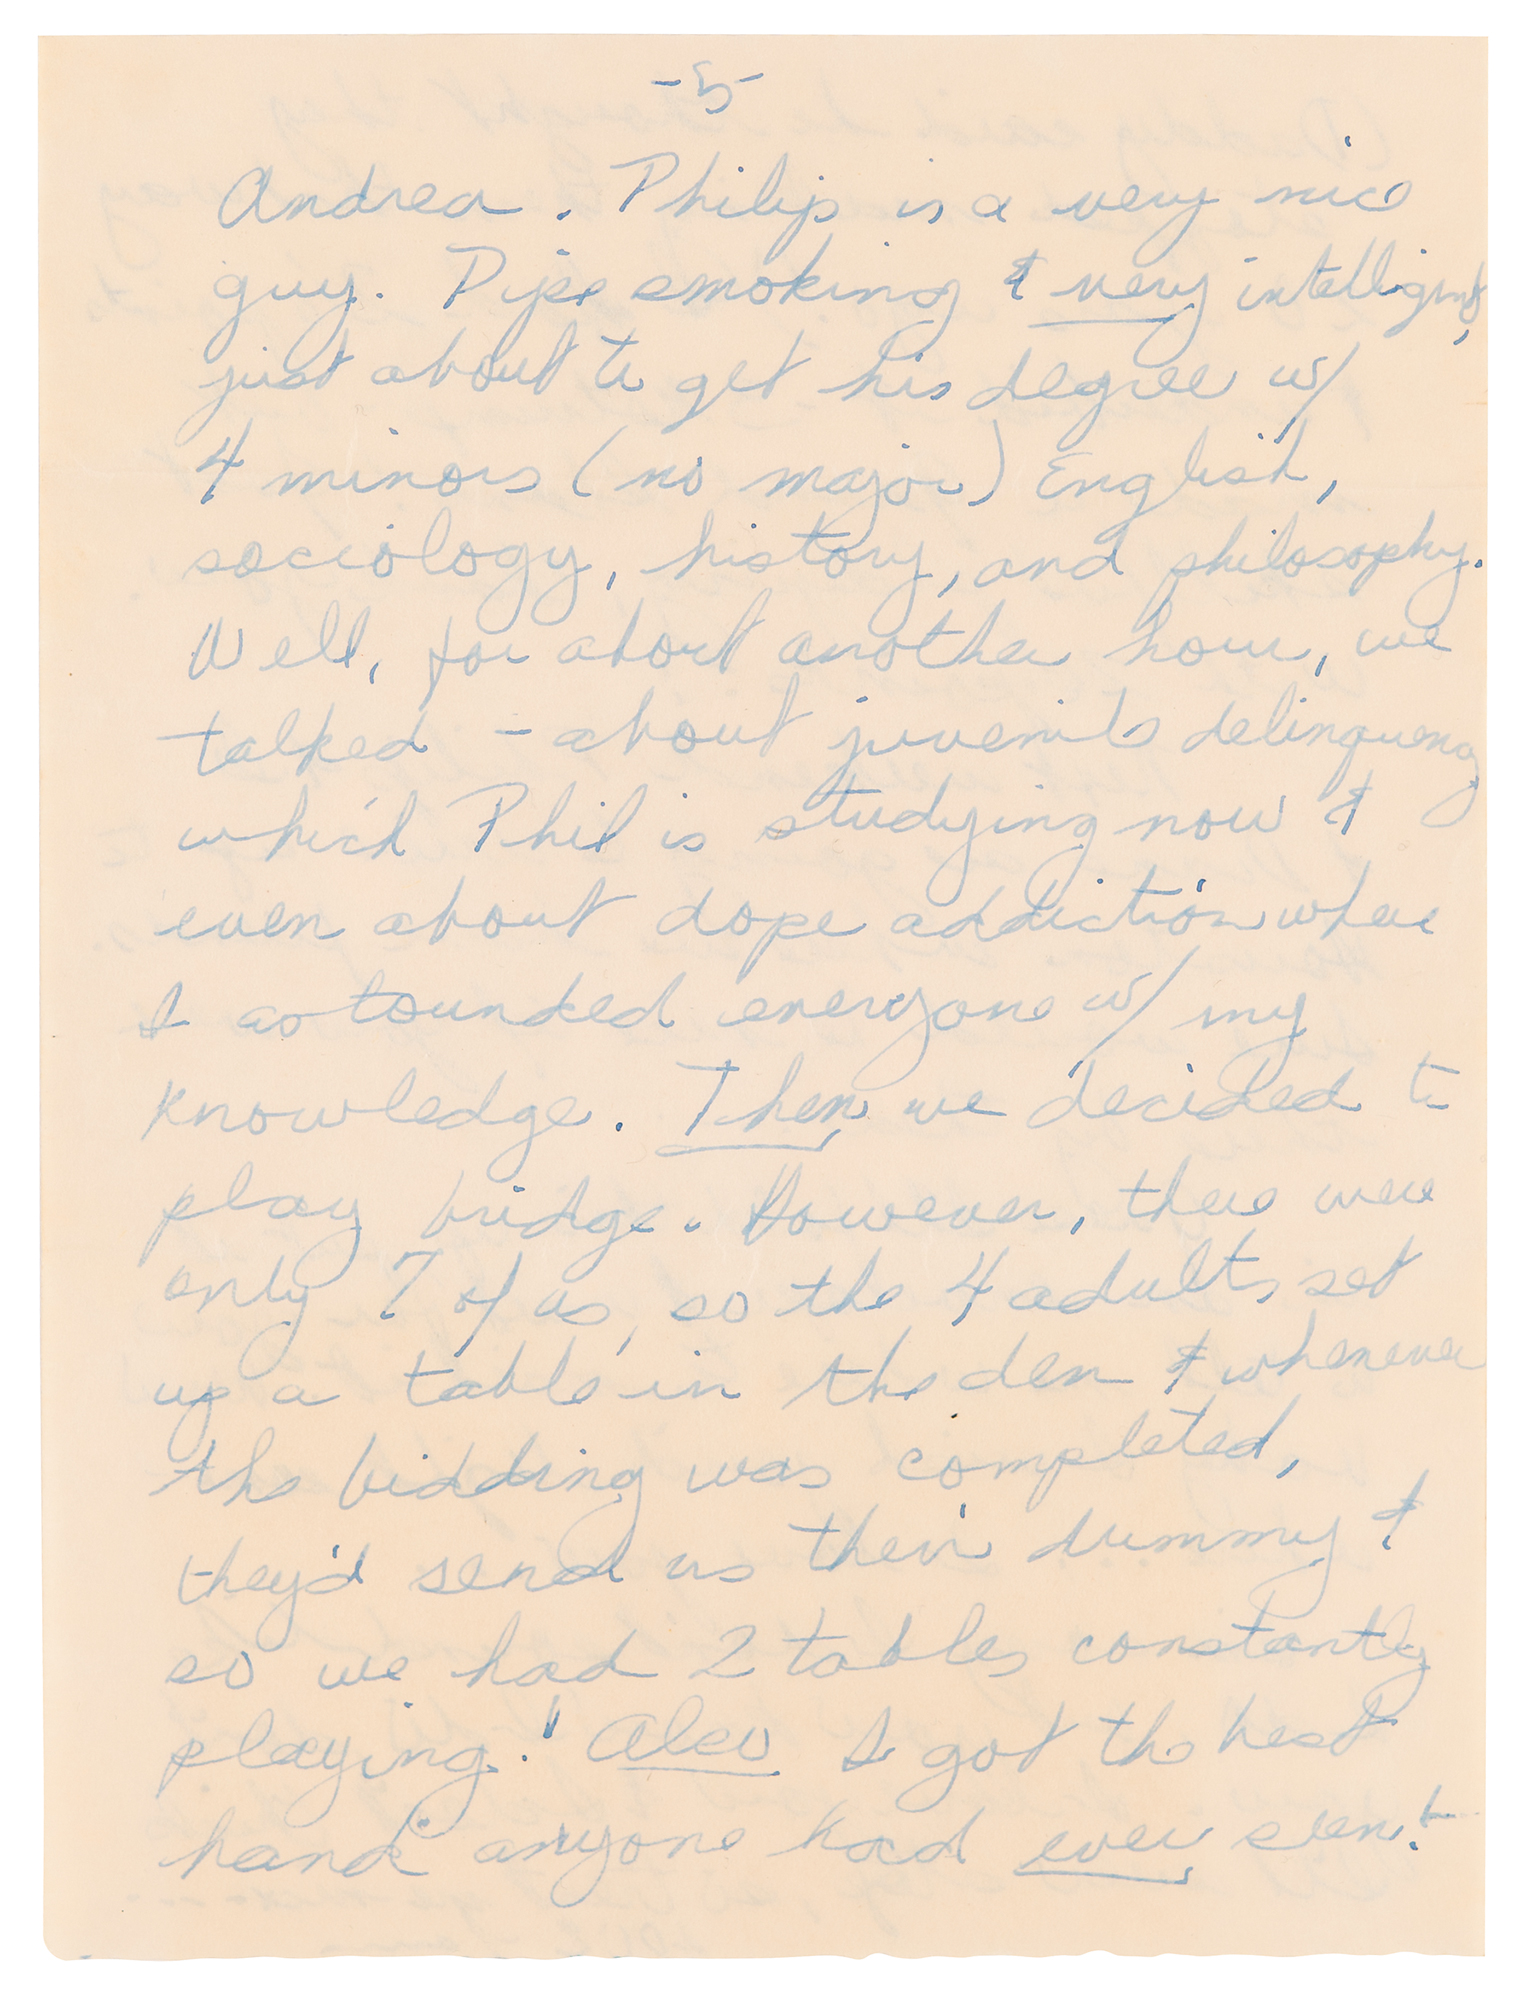 -5-
Andrea. Philip is a very nice
guy. Pipe smoking & very intelligent,
just about to get his degree w/
4 minors (no major) English,
sociology, history, and philosophy.
Well, for about another hour, we
talked - about juvenile delinquency
which Phil is studying now &
even about dope addiction where
I astounded everyone w/ my
knowledge. Then we decided to
play bridge. However, there were
only 7 of us, so the 4 adults set
up a table in the den & whenever
the bidding was completed,
they'd send us their dummy &
so we had 2 tables constantly
playing! Also I got the best
hand anyone had ever seen!